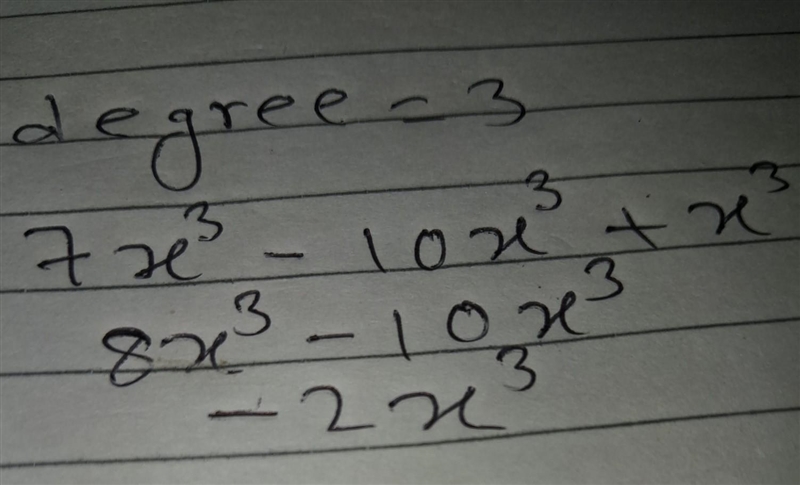 degree = 3
7x³ - 10x³ + x³
8x³ - 10x³
- 2x³